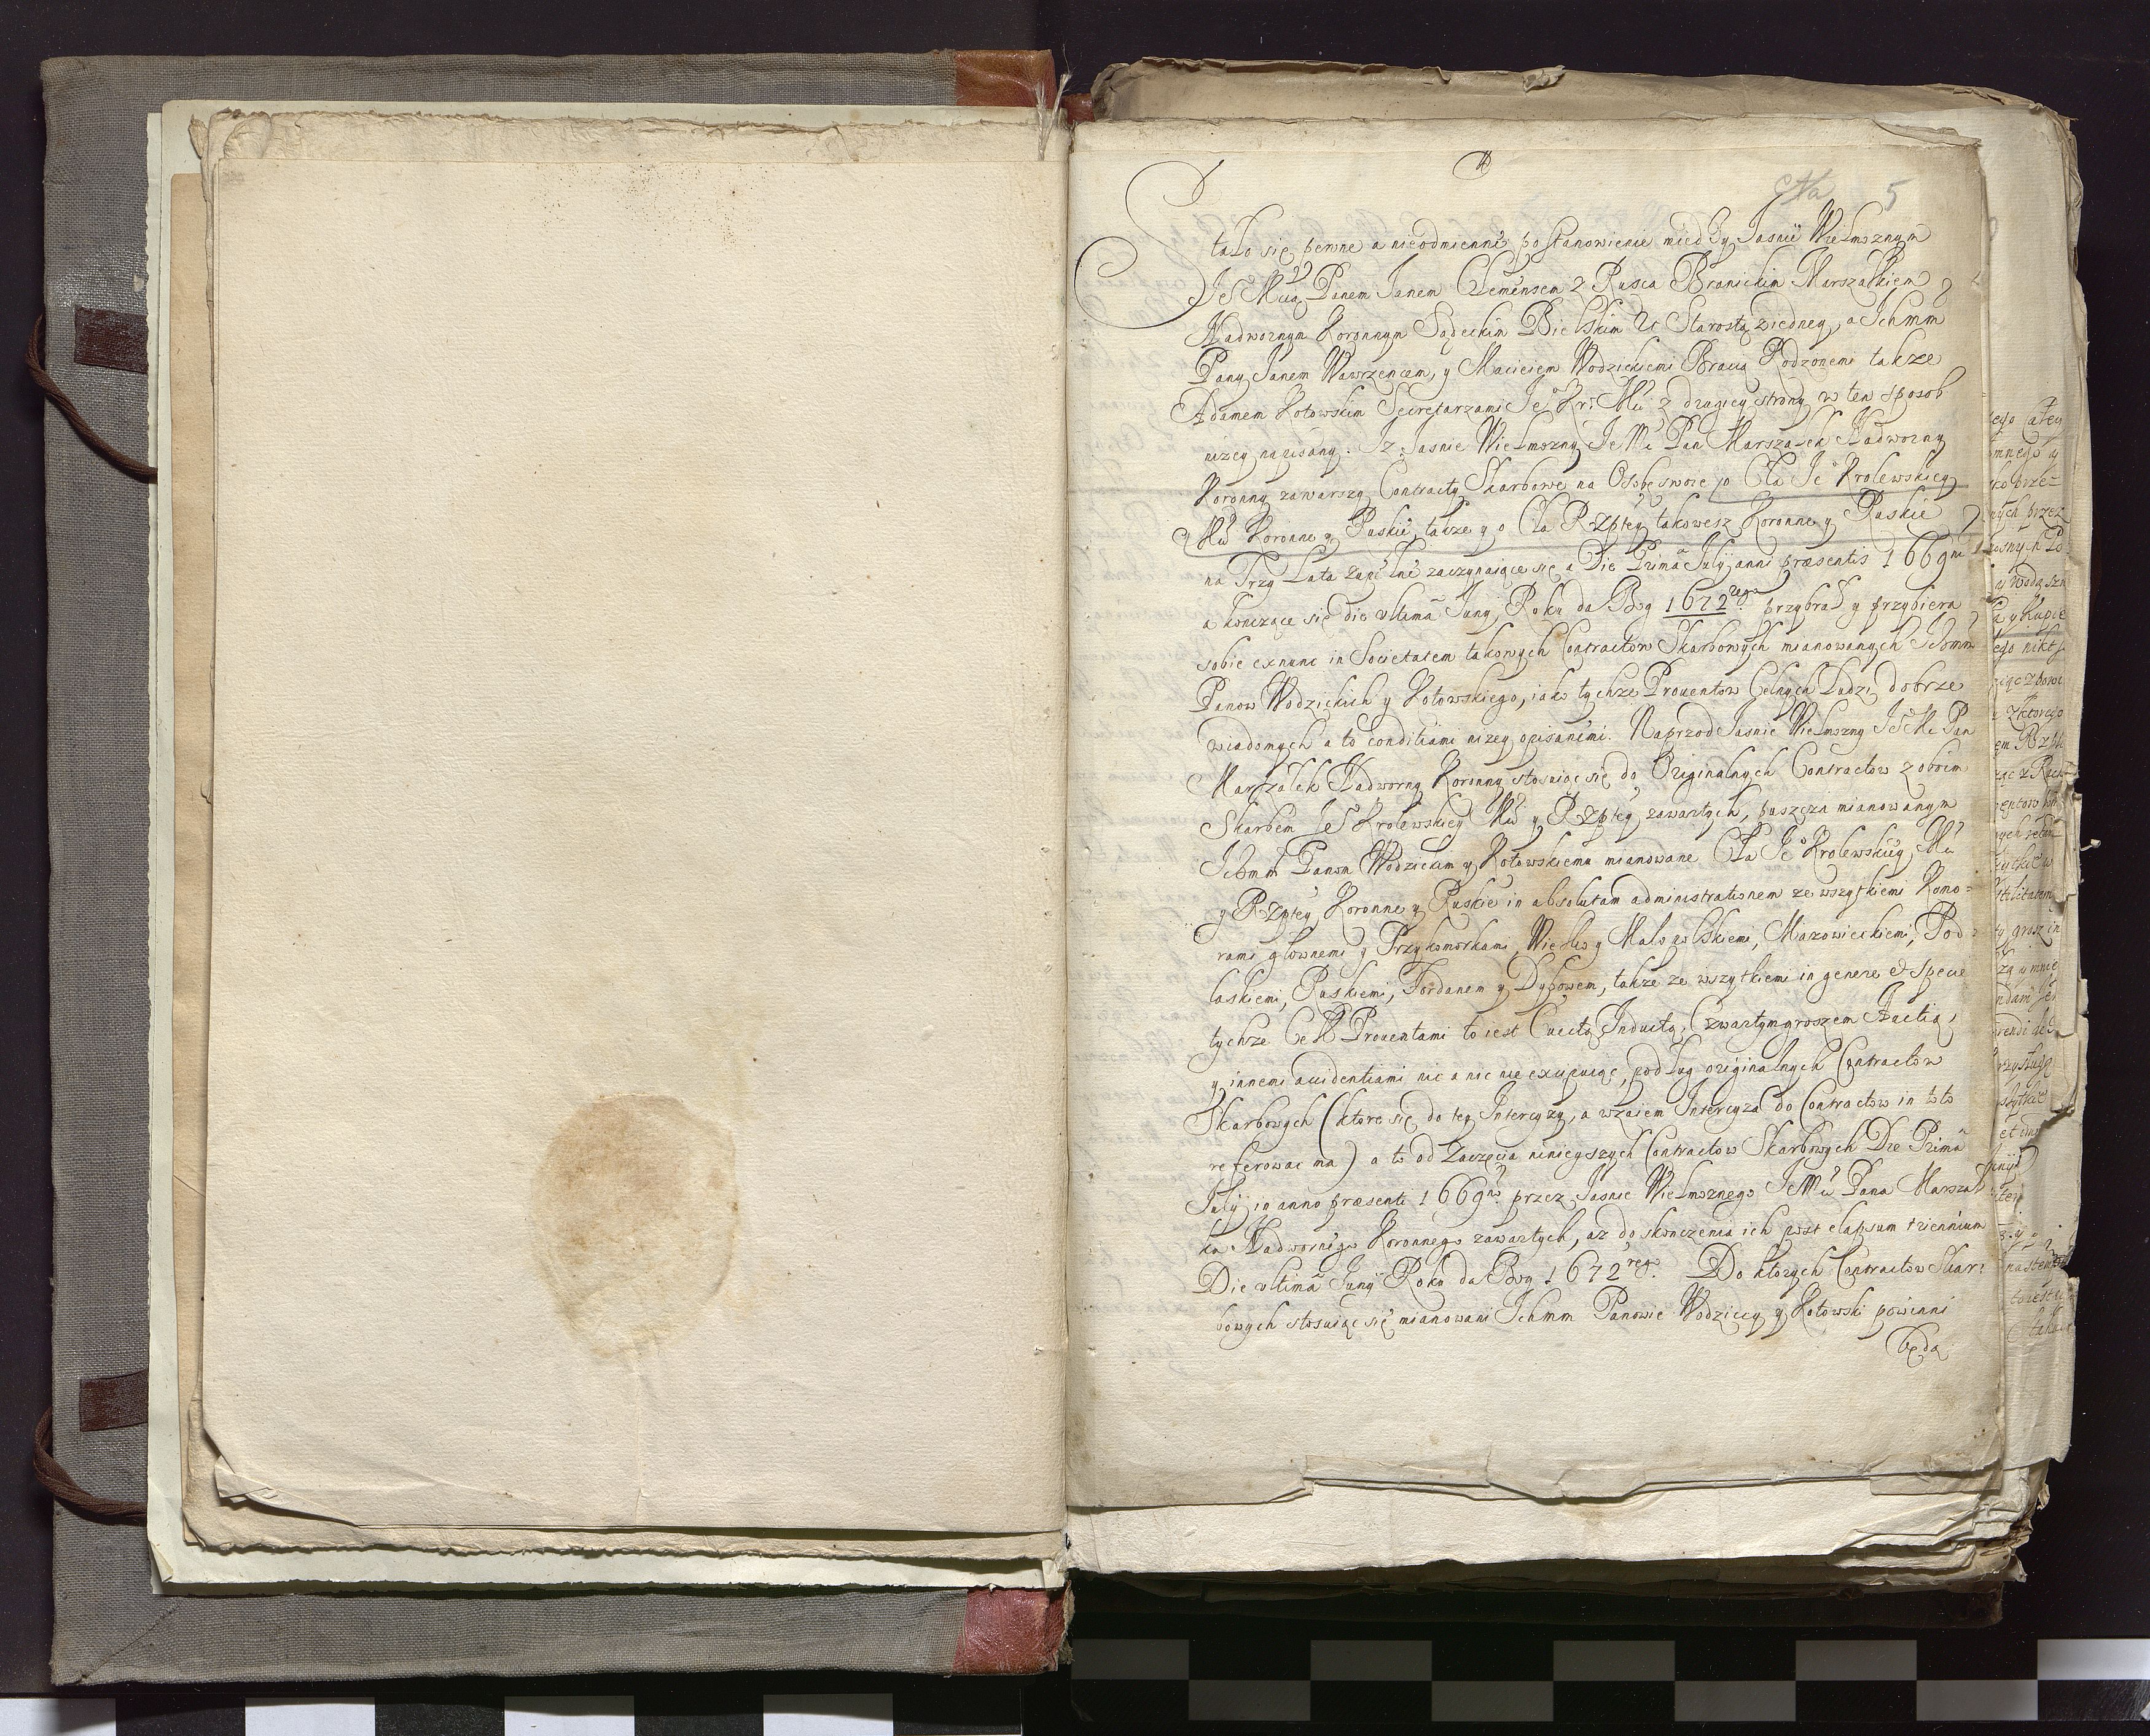 5
Stało się pewne a nieodmienne postanowienie między Jasnie Wielmoznym
Je Mcią Panem Janem Clemensem z Rusca Branickim Marszałkiem
Nadwornym Koronnym Sądeckim Bielskim &c Starostą z iedney, a Ichmm
Pany Janem Wawrzencem, y Macieiem Wodzickiemi Bracią Rodzonemi takze
Adamem Kotowskim Secretarzami Je° Kr: Mci z drugiey strony w ten sposob
nizey napisany. Iz Jasnie Wielmozny Je Mc Pan Marszałek Nadworny
Koronny zawarszy Contracty Skarbowe na Osobę swoię o Cła Je° Krolewskiey
Mci Koronne y Ruskie, takze y o Cła Rzptey takowesz Koronne y Ruskie
na Trzy Lata zupełne zaczynaiące się a Die Prima July anni præsentis 1669
a konczące się die ultima Juny Roku da Bog 1672 przybrał y przybiera
sobie exnunc in Societatem takowych Contractow Skarbowych mianowanych Ichmm
Panow Wodzickich y Kotowskiego, iako tychze Prouentow Celnych Ludzi dobrze
wiadomych a to conditiami nizey opisanemi. Naprzod Jasnie Wielmozny Je Mc Pan
Marszałek Nadworny Koronny stosuiąc się do Originalnych Contractow z oboim
Skarbem Je° Krolewskiey Mci y Rzptey zawartych, puszcza mianowanym
Ichmm Panom Wodzickim y Kotowskiemu mianowane Cła Je° Krolewskiey Mci
y Rzptey Koronne y Ruskie in absolutam administrationem ze wszytkiemi Komo-
rami głownemi y Przykomorkami, Wielko y Małopolskiemi, Mazowieckiemi, Pod-
laskiemi, Ruskiemi, Fordanem y Dybowem, takze ze wszytkiemi in genere et specie
tychze Ceł Prouentami to iest Euectą, Inductą, Czwartym groszem Auctią,
y innemi accidentiami nic a nic nie excipuiąc, podług originalnych Contractow
Skarbowych (ktore się do tey Intercyzy, a wzaiem Intercyza do Contractow in toto
referowac ma) a to od Zaczęcia ninieyszych Contractow Skarbowych Die Prima
July in anno præsenti 1669 przez Jasnie Wielmoznego Je Mci Pana Marszał-
ka Nadwornego Koronnego zawartych, az do skonczenia ich post elapsum triennium
Die ultima Juny Roku da Bog 1672. Do ktorych Contractow Skar-
bowych stosuiąc się mianowani Ichmm Panowie Wodziccy y Kotowski powinni
będą